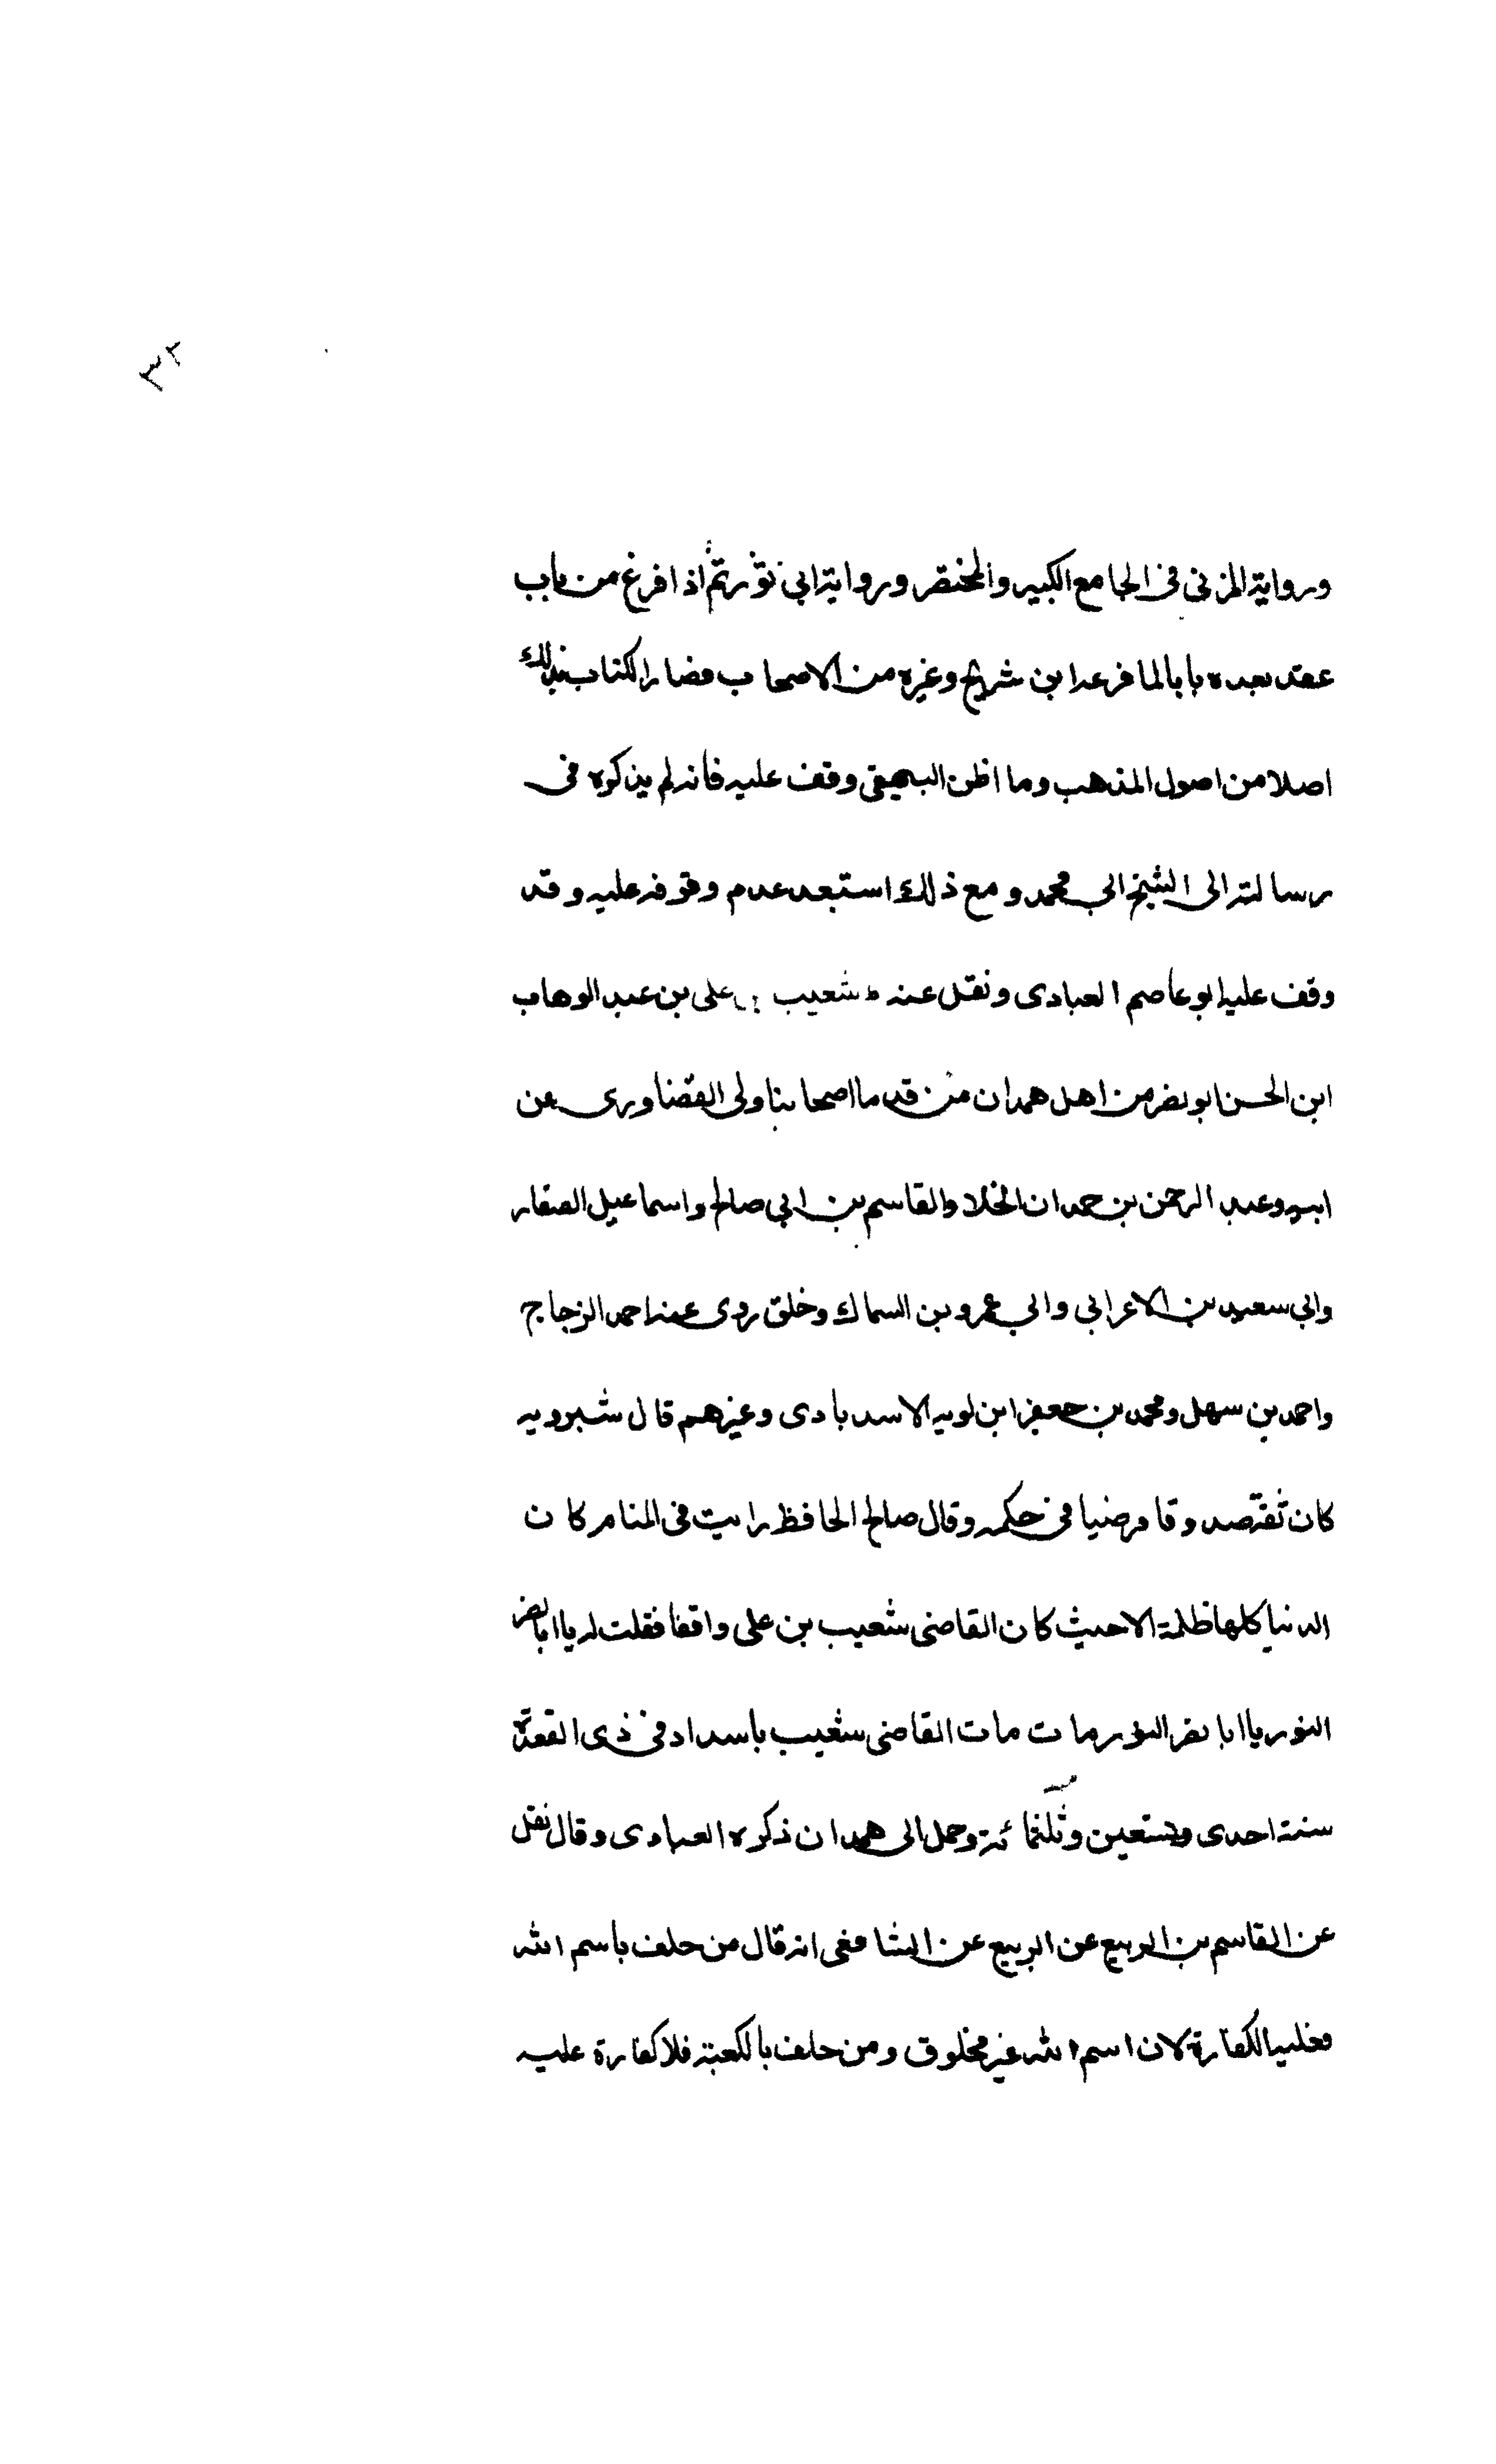 ٣٢
ورواية المزني في الجامع الكبير والمختصر ورواية ابي ثور ثم اذا فرغ من باب
عقد بعده بابا لما فرعه ابن شريح وغيره من الاصحاب فصار الكتاب بذلك
اصلا من اصول المذهب وما اظن البيهقي وقف عليه فانه لم يذكره في
رسالته الى الشيخ ابي محمد ومع ذلك استبعد عدم وقوفه عليه وقد
وقف عليه ابو عاصم العبادى ونقل عنه شعيب بن على بن عبد الوهاب
ابن الحسن ابو نصر من اهل همدان من قدما اصحابنا ولى القضا وروى عن
ابيه وعبد الرحمن بن حمدان الخلاد والقاسم بن ابي صالح واسماعيل الصفار
وابي سعيد بن الاعرابي وابي عمرو بن السماك وخلق ردى عنه احمد الزجاج
واحمد بن سهل ومحمد بن جعفر ابن لويه الاسدبادى وغيرهم قال شيرويه
كان ثقة صدوقا مرضيا في حكمه وقال صالح الحافظ رايت في المنام كان
الدنيا كلها ظلمة الا حيث كان القاضي شعيب بن على واقفا فقلت له يا ابا نصر
النور يا ابا نصر النور مات مات القاضي شعيب باسداد في ذى القعدة
سنة احدى وتسعين وثلثمائة وحمل الى همدان ذكره العبادى وقال نقل
عن القاسم بن الربيع عن الربيع عن الشافعي انه قال من حلف باسم الله
فعليه الكفارة لان اسم الله غير مخلوق ومن حلف بالكعبة فلا كفارة عليه